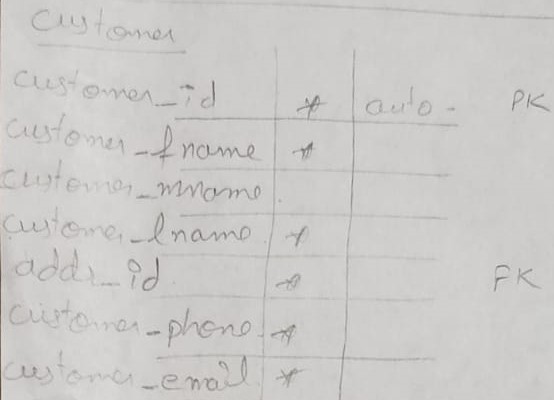 Customer
customer_id * auto- PK
customer_fname *
customer_mname
customer_lname *
addr_id * FK
customer_phone *
customer_email *